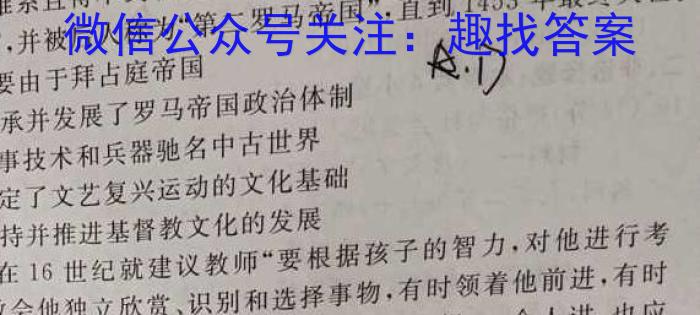 ,并被
第二罗马帝国",直到1453年最终
微信公众号关注：趣找答案
要由于拜占庭帝国
A.D
承并发展了罗马帝国政治体制
事技术和兵器驰名中古世界
定了文艺复兴运动的文化基础
持并推进基督教文化的发展
在16世纪就建议教师"要根据孩子的智力,对他进行考
会他独立欣赏、识别和选择事物,有时领着他前进,有时